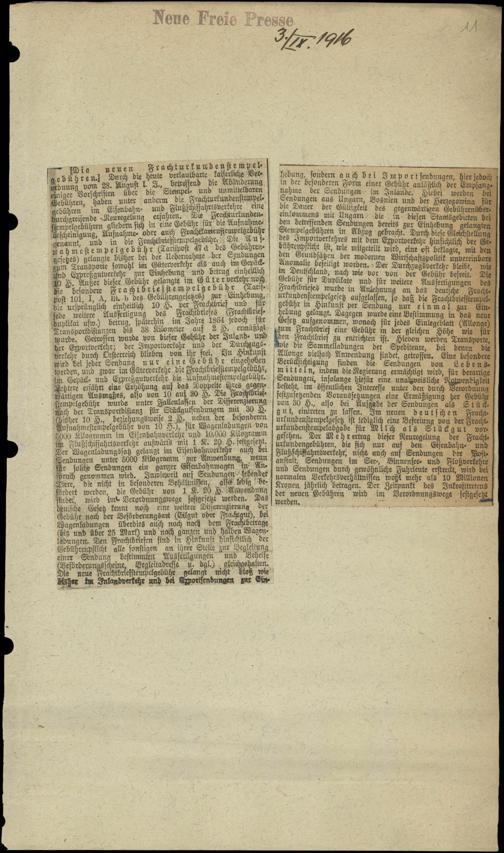 Neue Freie Presse
3./IX. 1916
11
[Die neuen Frachturkundenstempel-
gebühren.] Durch die heute verlautbarte kaiserliche Ver-
ordnung vom 28. August l. J., betreffend die Abänderung
einiger Vorschriften über die Stempel- und unmittelbaren
Gebühren, haben unter anderm die Frachturkundenstempel-
gebühren im Eisenbahn- und Flußschiffahrtsverkehr eine
durchgreifende Neuregelung erfahren. Die Frachturkunden-
stempelgebühren gliedern sich in eine Gebühr für die Aufnahms-
bescheinigung, Aufnahms- oder auch Frachturkundenstempel
genannt, und in die Frachtbriefstempelgebühr. Die Auf-
nahmsstempelgebühr (Tarifpost 47 d des Gebühren-
gesetzes) gelangte bisher bei der Uebernahme der Sendungen
zum Transporte sowohl im Güterverkehr als auch im Gepäck-
und Expreßgutverkehr zur Einhebung und betrug einheitlich
10 H. Außer dieser Gebühr gelangt im Güterverkehr noch
die besondere Frachtbriefstempelgebühr (Tarif-
post 101, I, A, lit. b des Gebührengesetzes) zur Einhebung,
die ursprünglich einheitlich 10 H. per Frachtbrief und für
jede weitere Ausfertigung des Frachtbriefes (Frachtbrief-
duplikat usw.) betrug, späterhin im Jahre 1864 jedoch für
Transportdistanzen bis 38 Kilometer auf 2 H. ermäßigt
wurde. Getroffen wurde von dieser Gebühr der Inland- und
der Exportverkehr; der Importverkehr und der Durchzugs-
verkehr durch Oesterreich blieben von ihr frei. In Hinkunft
wird bei jeder Sendung nur eine Gebühr eingehoben
werden, und zwar im Güterverkehr die Frachtbriefstempelgebühr,
im Gepäck- und Expreßgutverkehr die Aufnahmsstempelgebühr.
Letztere erfährt eine Erhöhung auf das Doppelte ihres gegen-
wärtigen Ausmaßes, also von 10 auf 20 H. Die Frachtbrief-
stempelgebühr wurde unter Fallenlassen der Differenzierung
nach der Transportdistanz für Stückgutsendungen mit 30 H.
(bisher 10 H., beziehungsweise 2 H. neben der besonderen
Aufnahmsstempelgebühr von 10 H.), für Wagenladungen von
5000 Kilogramm im Eisenbahnverkehr und 10.000 Kilogramm
im Flußschiffahrtsverkehr aufwärts mit 1 K. 20 H. festgesetzt.
Der Wagenladungssatz gelangt im Eisenbahnverkehr auch bei
Sendungen unter 5000 Kilogramm zur Anwendung, wenn
für solche Sendungen ein ganzer Eisenbahnwagen in An-
spruch genommen wird. Inwieweit auf Sendungen lebender
Tiere, die nicht in besonderen Behältnissen, also ledig be-
fördert werden, die Gebühr von 1 K. 20 H. Anwendung
findet, wird im Verordnungswege festgesetzt werden. Das
deutsche Gesetz kennt noch eine weitere Differenzierung der
Gebühr nach der Beförderungsart (Eilgut oder Frachtgut), bei
Wagenladungen überdies auch noch nach dem Frachtbetrage
(bis und über 25 Mark) und nach ganzen und halben Wagen-
ladungen. Den Frachtbriefen sind in Hinkunft hinsichtlich der
Gebührenpflicht alle sonstigen an ihrer Stelle zur Begleitung
einer Sendung bestimmten Ausfertigungen und Behelfe
(Beförderungsscheine, Begleitadresse u. dgl.) gleichgehalten.
Die neue Frachtbriefstempelgebühr gelangt nicht bloß wie
bisher im Inlandverkehr und bei Exportsendungen zur Ein-
hebung, sondern auch bei Importsendungen, hier jedoch
in der besonderen Form einer Gebühr anläßlich der Empfang-
nahme der Sendungen im Inlande. Hiebei werden bei
Sendungen aus Ungarn, Bosnien und der Herzegowina für
die Dauer der Gültigkeit des gegenwärtigen Gebührenüber-
einkommens mit Ungarn die in diesen Staatsgebieten bei
den betreffenden Sendungen bereits zur Einhebung gelangten
Stempelgebühren in Abzug gebracht. Durch die Gleichstellung
des Importverkehrs mit dem Exportverkehr hinsichtlich der Ge-
bührenpflicht ist, wie mitgeteilt wird, eine oft beklagte, mit den
den Grundsätzen der modernen Wirtschaftspolitik unvereinbare
Anomalie beseitigt worden. Der Durchzugsverkehr bleibt, wie
in Deutschland, nach wie vor von der Gebühr befreit. Die
Gebühr für Duplikate und für weitere Ausfertigungen des
Frachtbriefes wurde in Anlehnung an das deutsche Fracht-
urkundenstempelgesetz aufgelassen, so daß die Frachtbriefstempel-
gebühr in Hinkunft per Sendung nur einmal zur Ein-
hebung gelangt. Dagegen wurde eine Bestimmung in das neue
Gesetz aufgenommen, wonach für jedes Einlageblatt (Allonge)
zum Frachtbrief eine Gebühr in der gleichen Höhe wie für
den Frachtbrief zu entrichten ist. Hievon werden Transporte,
wie die Sammelladungen der Spediteure, bei denen die
Allonge vielfach Anwendung findet, getroffen. Eine besondere
Berücksichtigung finden die Sendungen von Lebens-
mitteln, indem die Regierung ermächtigt wird, für derartige
Sendungen, insolange hiefür eine unabweisliche Notwendigkeit
besteht, im öffentlichen Interesse unter den durch Verordnung
festzusetzenden Voraussetzungen eine Ermäßigung der Gebühr
von 30 H., also bei Aufgabe der Sendungen als Stück-
gut, eintreten zu lassen. Im neuen deutschen Fracht-
urkundenstempelgesetz ist lediglich eine Befreiung von der Fracht-
urkundenstempelabgabe für Milch als Stückgut vor-
gesehen. Der Mehrertrag dieser Neuregelung der Fracht-
urkundengebühren, die sich nur auf den Eisenbahn- und
Flußschiffahrtsverkehr, nicht auch auf Sendungen der Post-
anstalt, Sendungen im See-, Binnensee- und Floßverkehr
und Sendungen durch gewöhnliche Fuhrleute erstreckt, wird bei
normalen Verkehrsverhältnissen wohl mehr als 10 Millionen
Kronen jährlich betragen. Der Zeitpunkt des Inkrafttretens
der neuen Gebühren wird im Verordnungswege festgesetzt
werden.